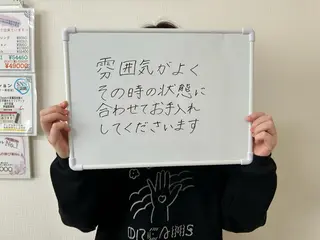 雰囲気がよく
その時の状態に
合わせてお手入れ
してくださいます